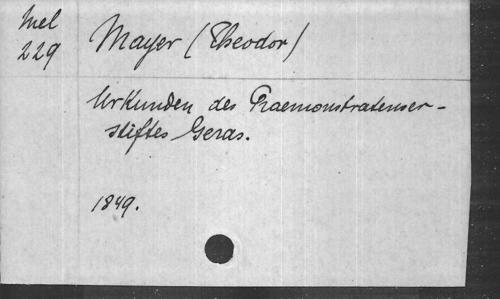 Mel
229
Mayer (Theodor)
Urkunden des Praemonstratenser-
stiftes Geras.
1849.